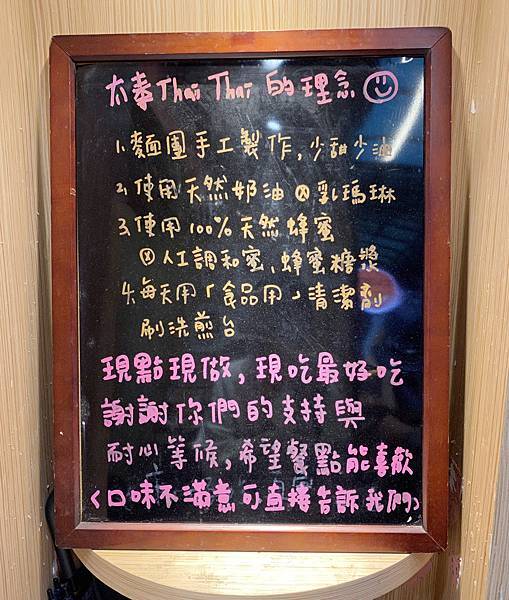 太泰Thai Thai 的理念
1、麵團手工製作,少甜少油
2、使用天然奶油ⓧ乳瑪琳
3、使用100%天然蜂蜜
ⓧ人工調和蜜、蜂蜜糖漿
4、每天用「食品用」清潔劑
刷洗煎台
現點現做,現吃最好吃
謝謝你們的支持與
耐心等候,希望餐點能喜歡
(口味不滿意可直接告訴我們)